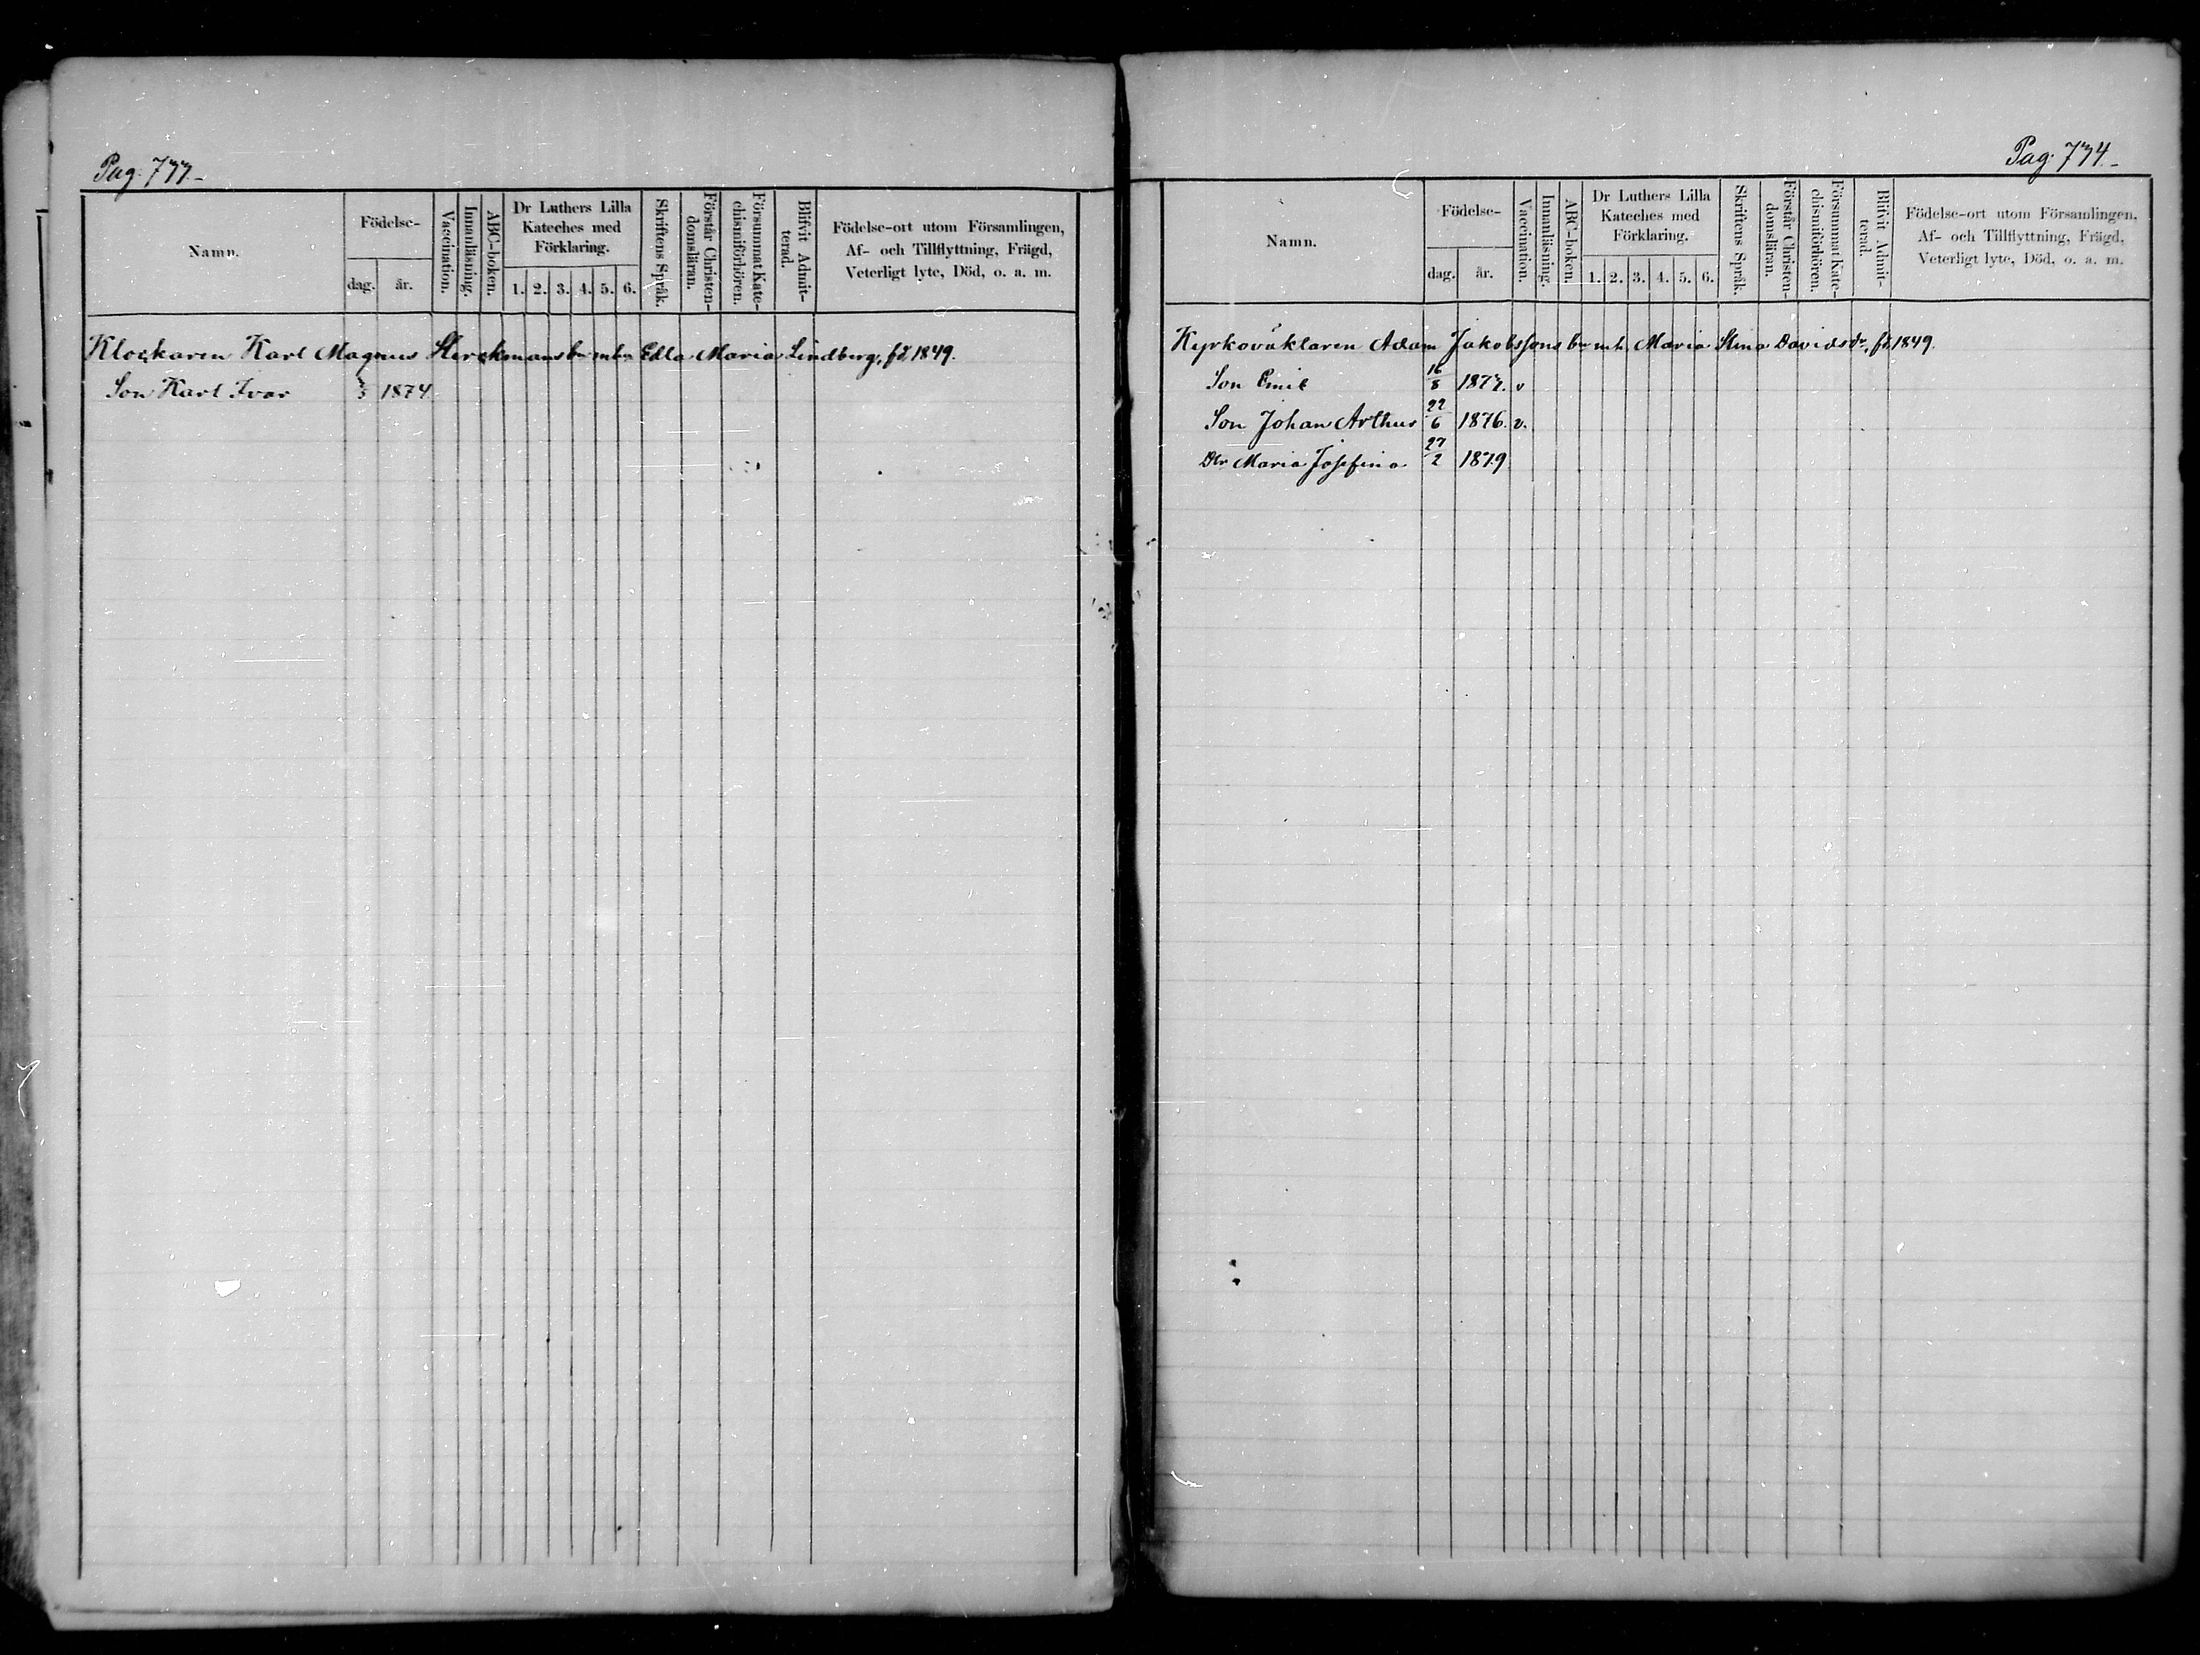 Pag. 733.
Namn.
Födelse-
dag.
år.
Vaccination.
Innanläsning.
ABC-boken.
Dr Luthers Lilla
Kateches med
Förklaring.
1. 2. 3. 4. 5. 6.
Skriftens Språk.
Förstår Christen-
domsläran.
Försummat Kate-
chismiförhören.
Blifvit Admit-
terad.
Födelse-ort utom Församlingen,
Af- och Tillflyttning, Frägd,
Veterligt lyte, Död, o. a. m.
Klockaren Karl Magnus barn m. h. Edla Maria Lindberg, fd. 1849.
Son Karl Ivar 1874
Pag. 734.
Namn.
Födelse-
dag.
år.
Vaccination.
Innanläsning.
ABC-boken.
Dr Luthers Lilla
Kateches med
Förklaring.
1. 2. 3. 4. 5. 6.
Skriftens Språk.
Förstår Christen-
domsläran.
Försummat Kate-
chismiförhören.
Blifvit Admit-
terad.
Födelse-ort utom Församlingen,
Af- och Tillflyttning, Frägd,
Veterligt lyte, Död, o. a. m.
Kyrkoväktaren Adam Jakobssons barn m. h. Maria Stina Davidsdr, fd. 1849.
Son Emil 16/8 1873. v
Son Johan Arthur 22/6 1876. v.
Dtr Maria Josefina 27/2 1879